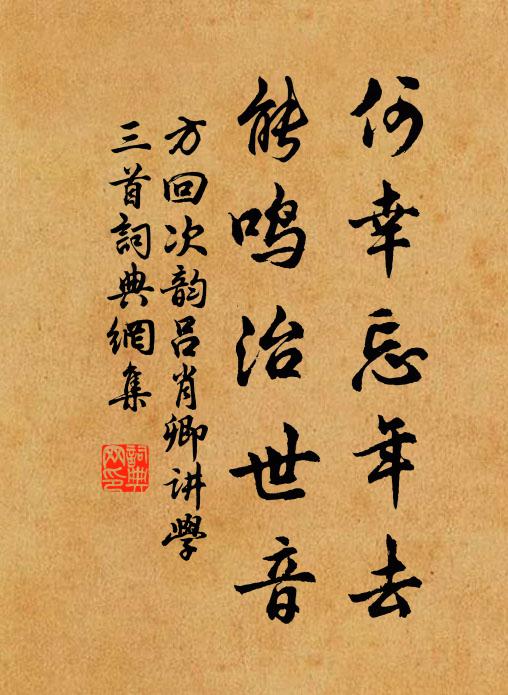 何幸忘年去
能鸣治世音
方回次韵吕肖卿讲學
三首詞典網集
詞典網印